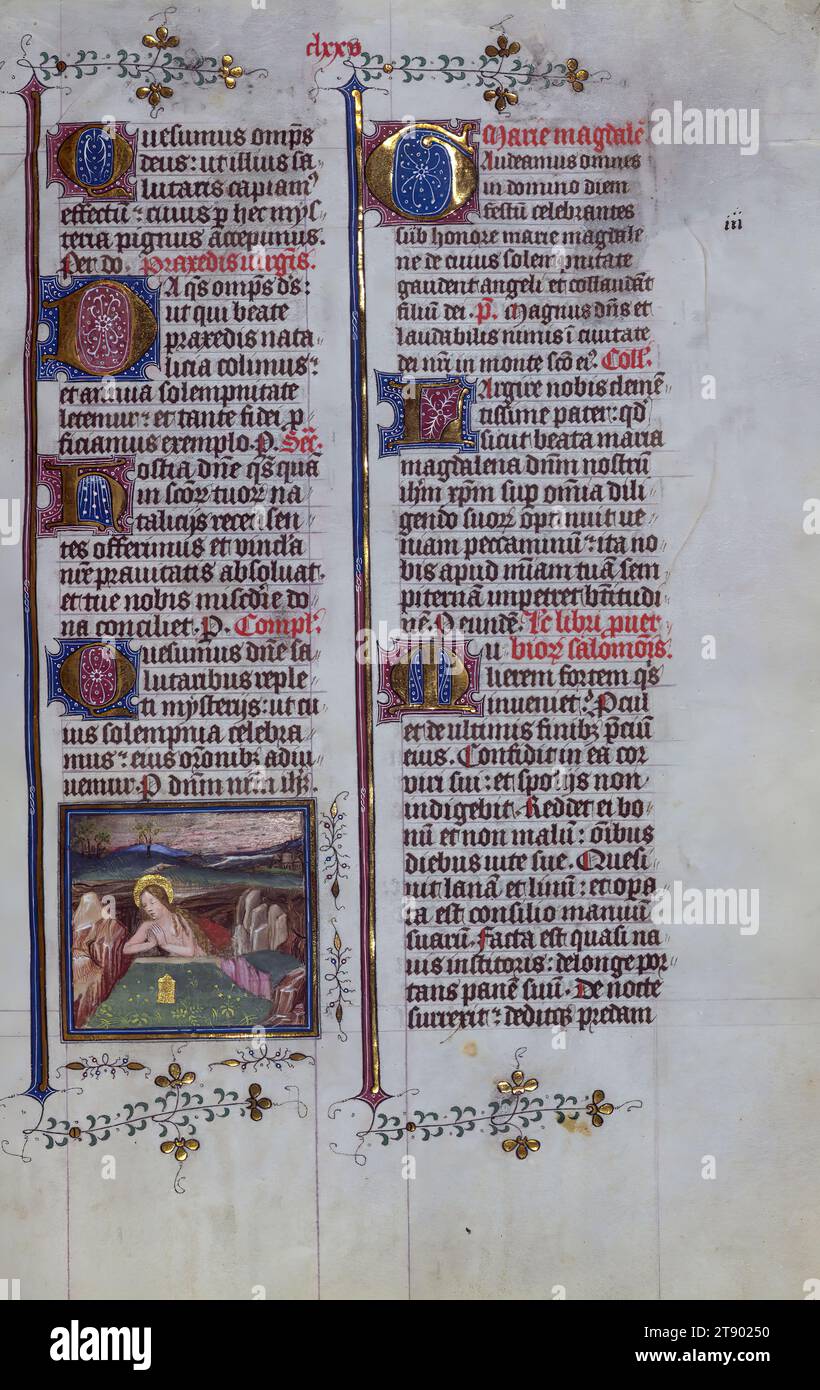 clxxv
Quesumus omp̄s
deus: ut illius sa
lutaris capiam᷒
effectū: cuius p hec mys
teria pignus accepimus.
Per do. Praxedis uirgīs.
DA q̄s omp̄s d̄s:
ut qui beate
praxedis nata
licia colimus:
et annua solempnitate
letemur: et tante fidei p
ficiamus exemplo. P. Sec̄
Hostia dn̄e q̄s quā
in scōꝝ tuoꝝ na
talicijs recensen
tes offerimus et vincl'a
nr̄e prauitatis absoluat.
et tue nobis mīscdīe do
na conciliet. P. Compl'.
Quesumus dn̄e sa
lutaribus reple
ti mysterijs: ut cu
ius solempnia celebra
mus: eius orōnibꝫ adiu
uemur. P dn̄m nr̄m ih̄ꝫ.
Marie magdalē
Gaudeamus omnes
in domino diem
festū celebrantes
sub honore marie magdale
ne de cuius solempnitate
gaudent angeli et collaudāt
filium dei. P̄. Magnus dn̄s et
laudabilis nimis ī ciuitate
dei nr̄i in monte scō ei᷒. Coll'.
iii
Largire nobis clemē
tissime pater: qd̄
sicut beata maria
magdalena dn̄m nostrū
ih̄m xp̄m sup om̄ia dili
gendo suoꝝ optinuit ue
niam peccaminū: ita no
bis apud mīam tuā sem
piternam impetret bn̄titudi
nē. P eundē. Lc̄ libri prouer
Mu bioꝝ salomōis.
lierem fortem q̄s
inueniet? Pcul
et de ultimis finibꝫ p̄ciū
eius. Confidit in ea cor
viri sui: et spolijs non
indigebit. Reddet ei bo
nū et non malū: oībus
diebus uite sue. Quesi
uit lanā et linū: et opa
ta est consilio manuū
suarū. Facta est quasi na
uis institoris: de longe por
tans panē suū. De nocte
surrexit: deditqꝫ predam
alamy
a
Image ID: 2T90250
www.alamy.com